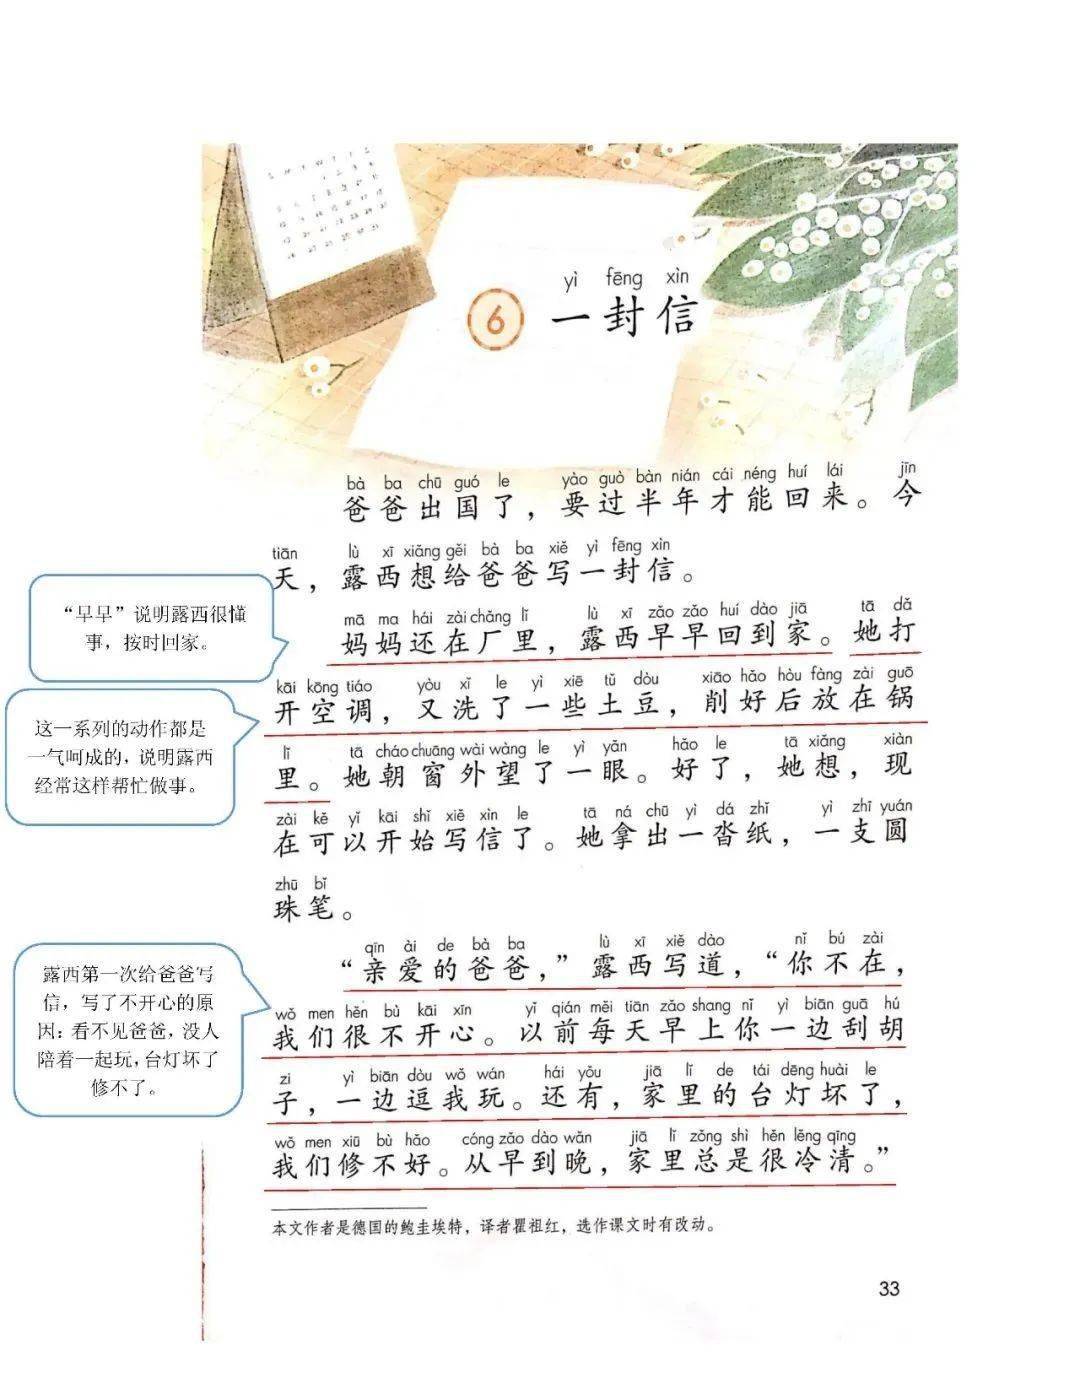 yì fēng xìn
6 一封信
bà ba chū guó le yào guò bàn nián cái néng huí lái jīn
爸爸出国了，要过半年才能回来。今
tiān lù xī xiǎng gěi bà ba xiě yì fēng xìn
天，露西想给爸爸写一封信。
mā ma hái zài chǎng lǐ lù xī zǎo zǎo huí dào jiā tā dǎ
妈妈还在厂里，露西早早回到家。她打
kāi kōng tiáo yòu xǐ le yì xiē tǔ dòu xiāo hǎo hòu fàng zài guō
开空调，又洗了一些土豆，削好后放在锅
lǐ tā cháo chuāng wài wàng le yì yǎn hǎo le tā xiǎng xiàn
里。她朝窗外望了一眼。好了，她想，现
zài kě yǐ kāi shǐ xiě xìn le tā ná chū yì dá zhǐ yì zhī yuán
在可以开始写信了。她拿出一沓纸，一支圆
zhū bǐ
珠笔。
qīn ài de bà ba lù xī xiě dào nǐ bú zài
“亲爱的爸爸，”露西写道，“你不在，
wǒ men hěn bù kāi xīn yǐ qián měi tiān zǎo shang nǐ yì biān guā hú
我们很不开心。以前每天早上你一边刮胡
zi yì biān dòu wǒ wán hái yǒu jiā lǐ de tái dēng huài le
子，一边逗我玩。还有，家里的台灯坏了，
wǒ men xiū bù hǎo cóng zǎo dào wǎn jiā lǐ zǒng shì hěn lěng qīng
我们修不好。从早到晚，家里总是很冷清。”
“早早”说明露西很懂
事，按时回家。
这一系列的动作都是
一气呵成的，说明露西
经常这样帮忙做事。
露西第一次给爸爸写
信，写了不开心的原
因：看不见爸爸，没人
陪着一起玩，台灯坏了
修不了。
本文作者是德国的鲍圭埃特，译者瞿祖红，选作课文时有改动。
33